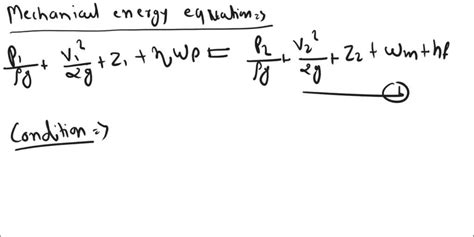 Mechanical energy equation ⇒
P₁/ρg + V₁²/2g + Z₁ + ηWp = P₂/ρg + V₂²/2g + Z₂ + Wm + hf
①
Condition ⇒